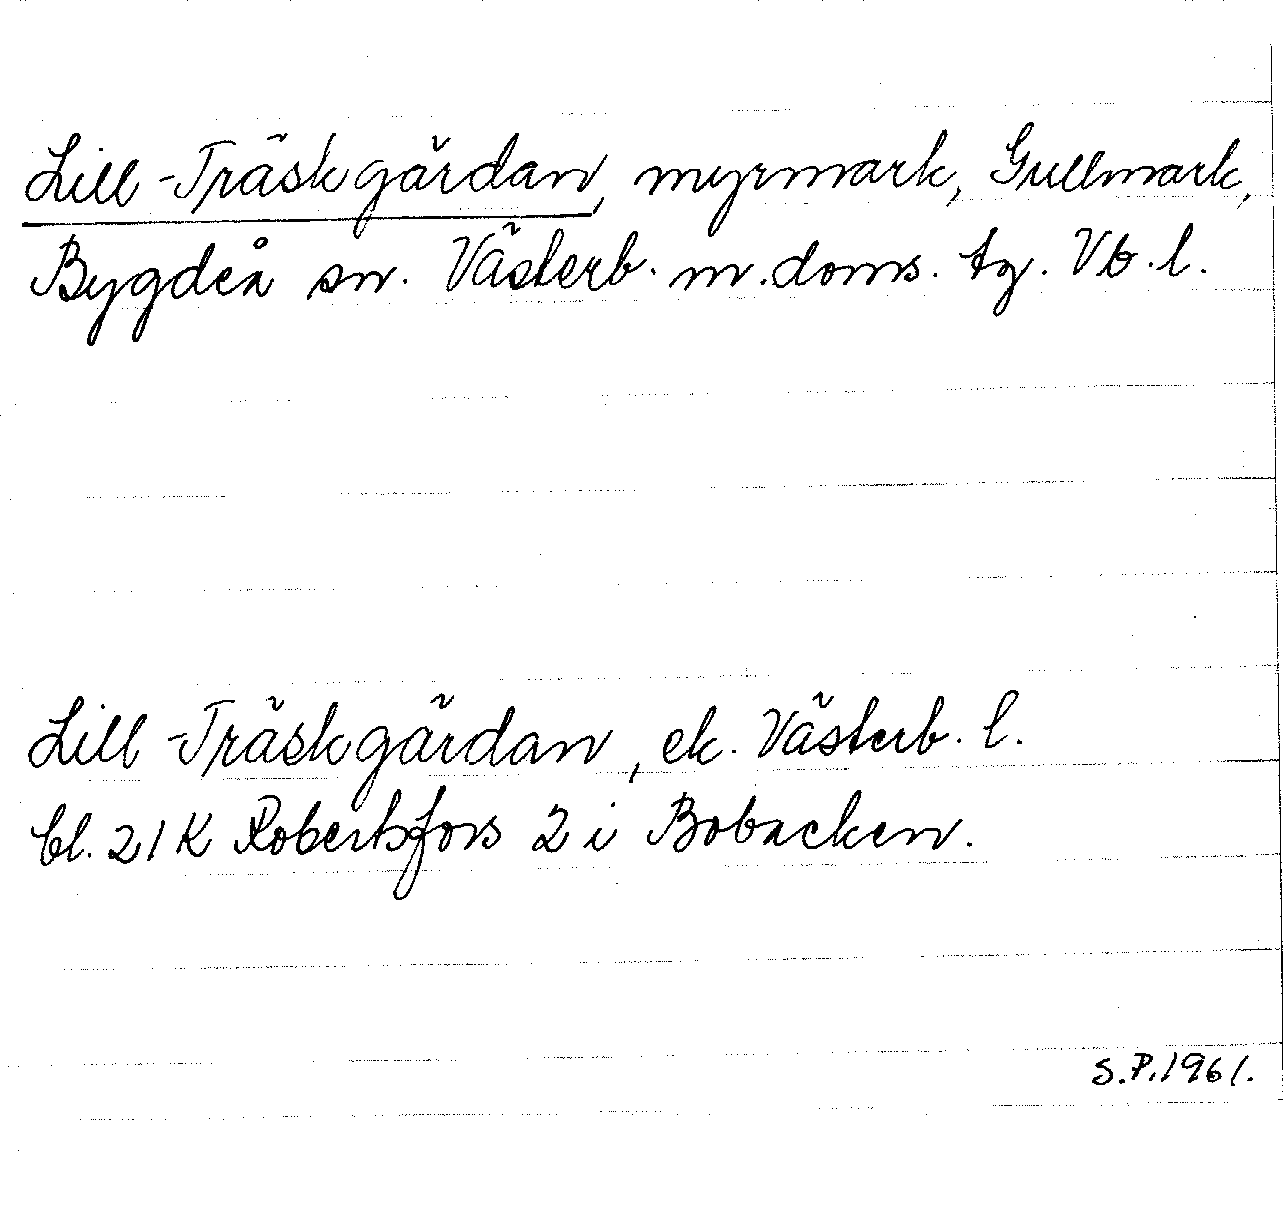 Lill-Träskgärdan, myrmark, Gullmark,
Bygdeå sn. Västerb. m.doms. tg. Vb.l.
Lill-Träskgärdan, ek. Västerb. l.
bl. 21K Robertsfors 2 i Bobacken.
S.P.1961.